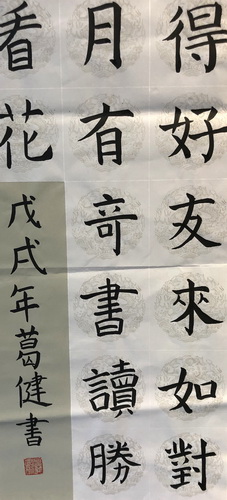 得好友來如對
月有奇書讀勝
看花
戊戌年葛健書